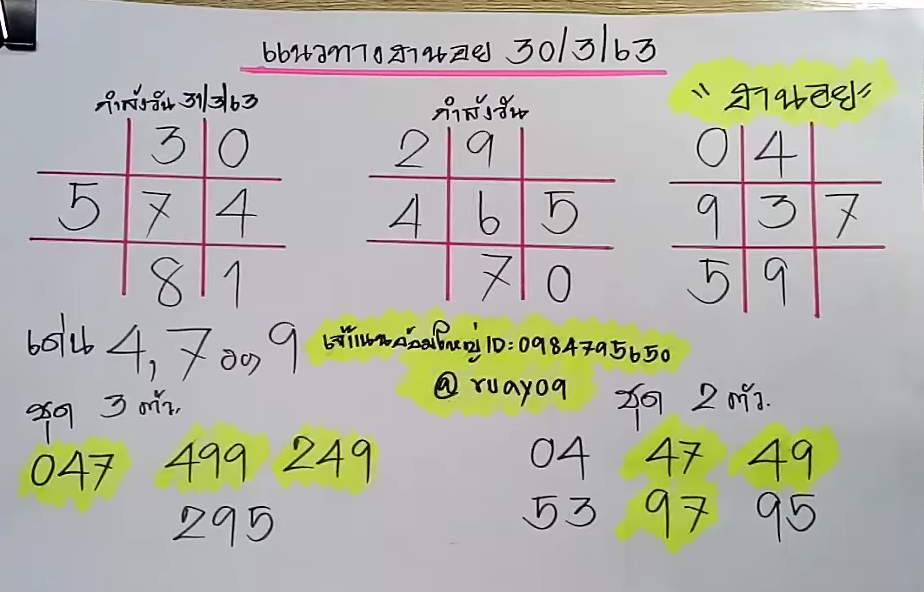 แนวทางฮานอย 30/3/63
กำลังวัน 31/3/63
3 0
5 7 4
8 1
กำลังวัน
2 9
4 6 5
7 0
"ฮานอย"
0 4
9 3 7
5 9
เด่น 4,7 รอง 9
เจ๊แนนอ้อมใหญ่ ID:0984795650
@ruay09
ชุด 3 ตัว.
047 499 249
295
ชุด 2 ตัว.
04 47 49
53 97 95